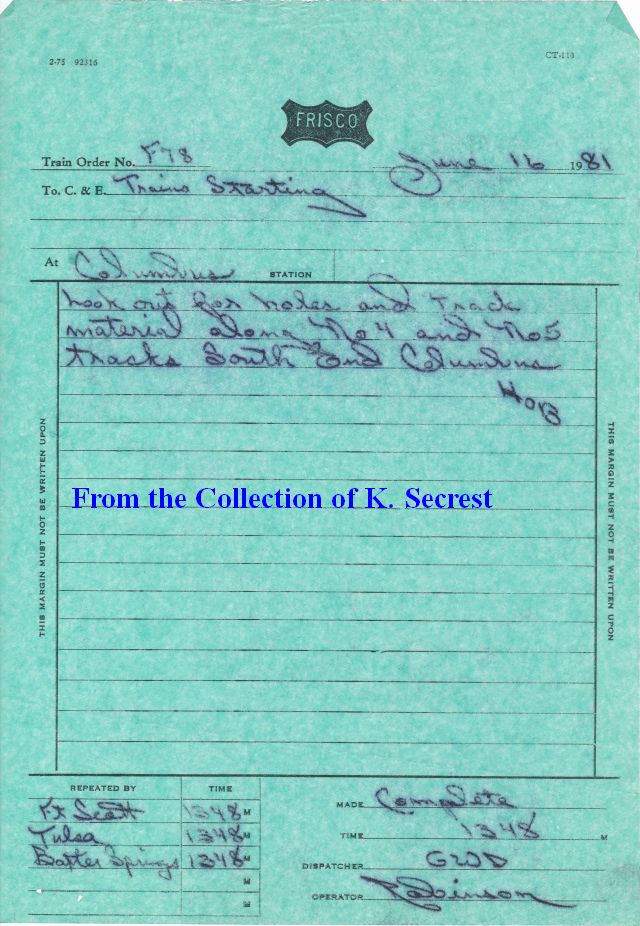 2-75 92316
CT-110
FRISCO
Train Order No. F78
June 16 1981
To. C. & E. Trains Starting
At Columbus STATION
Look out for holes and track
material along No 4 and No 5
tracks South End Columbus
HOB
THIS MARGIN MUST NOT BE WRITTEN UPON
THIS MARGIN MUST NOT BE WRITTEN UPON
From the Collection of K. Secrest
REPEATED BY TIME
Ft Scott 1348 M
Tulsa 1348 M
Baxter Springs 1348 M
M
M
MADE Complete
TIME 1348 M
DISPATCHER GWD
OPERATOR Robinson